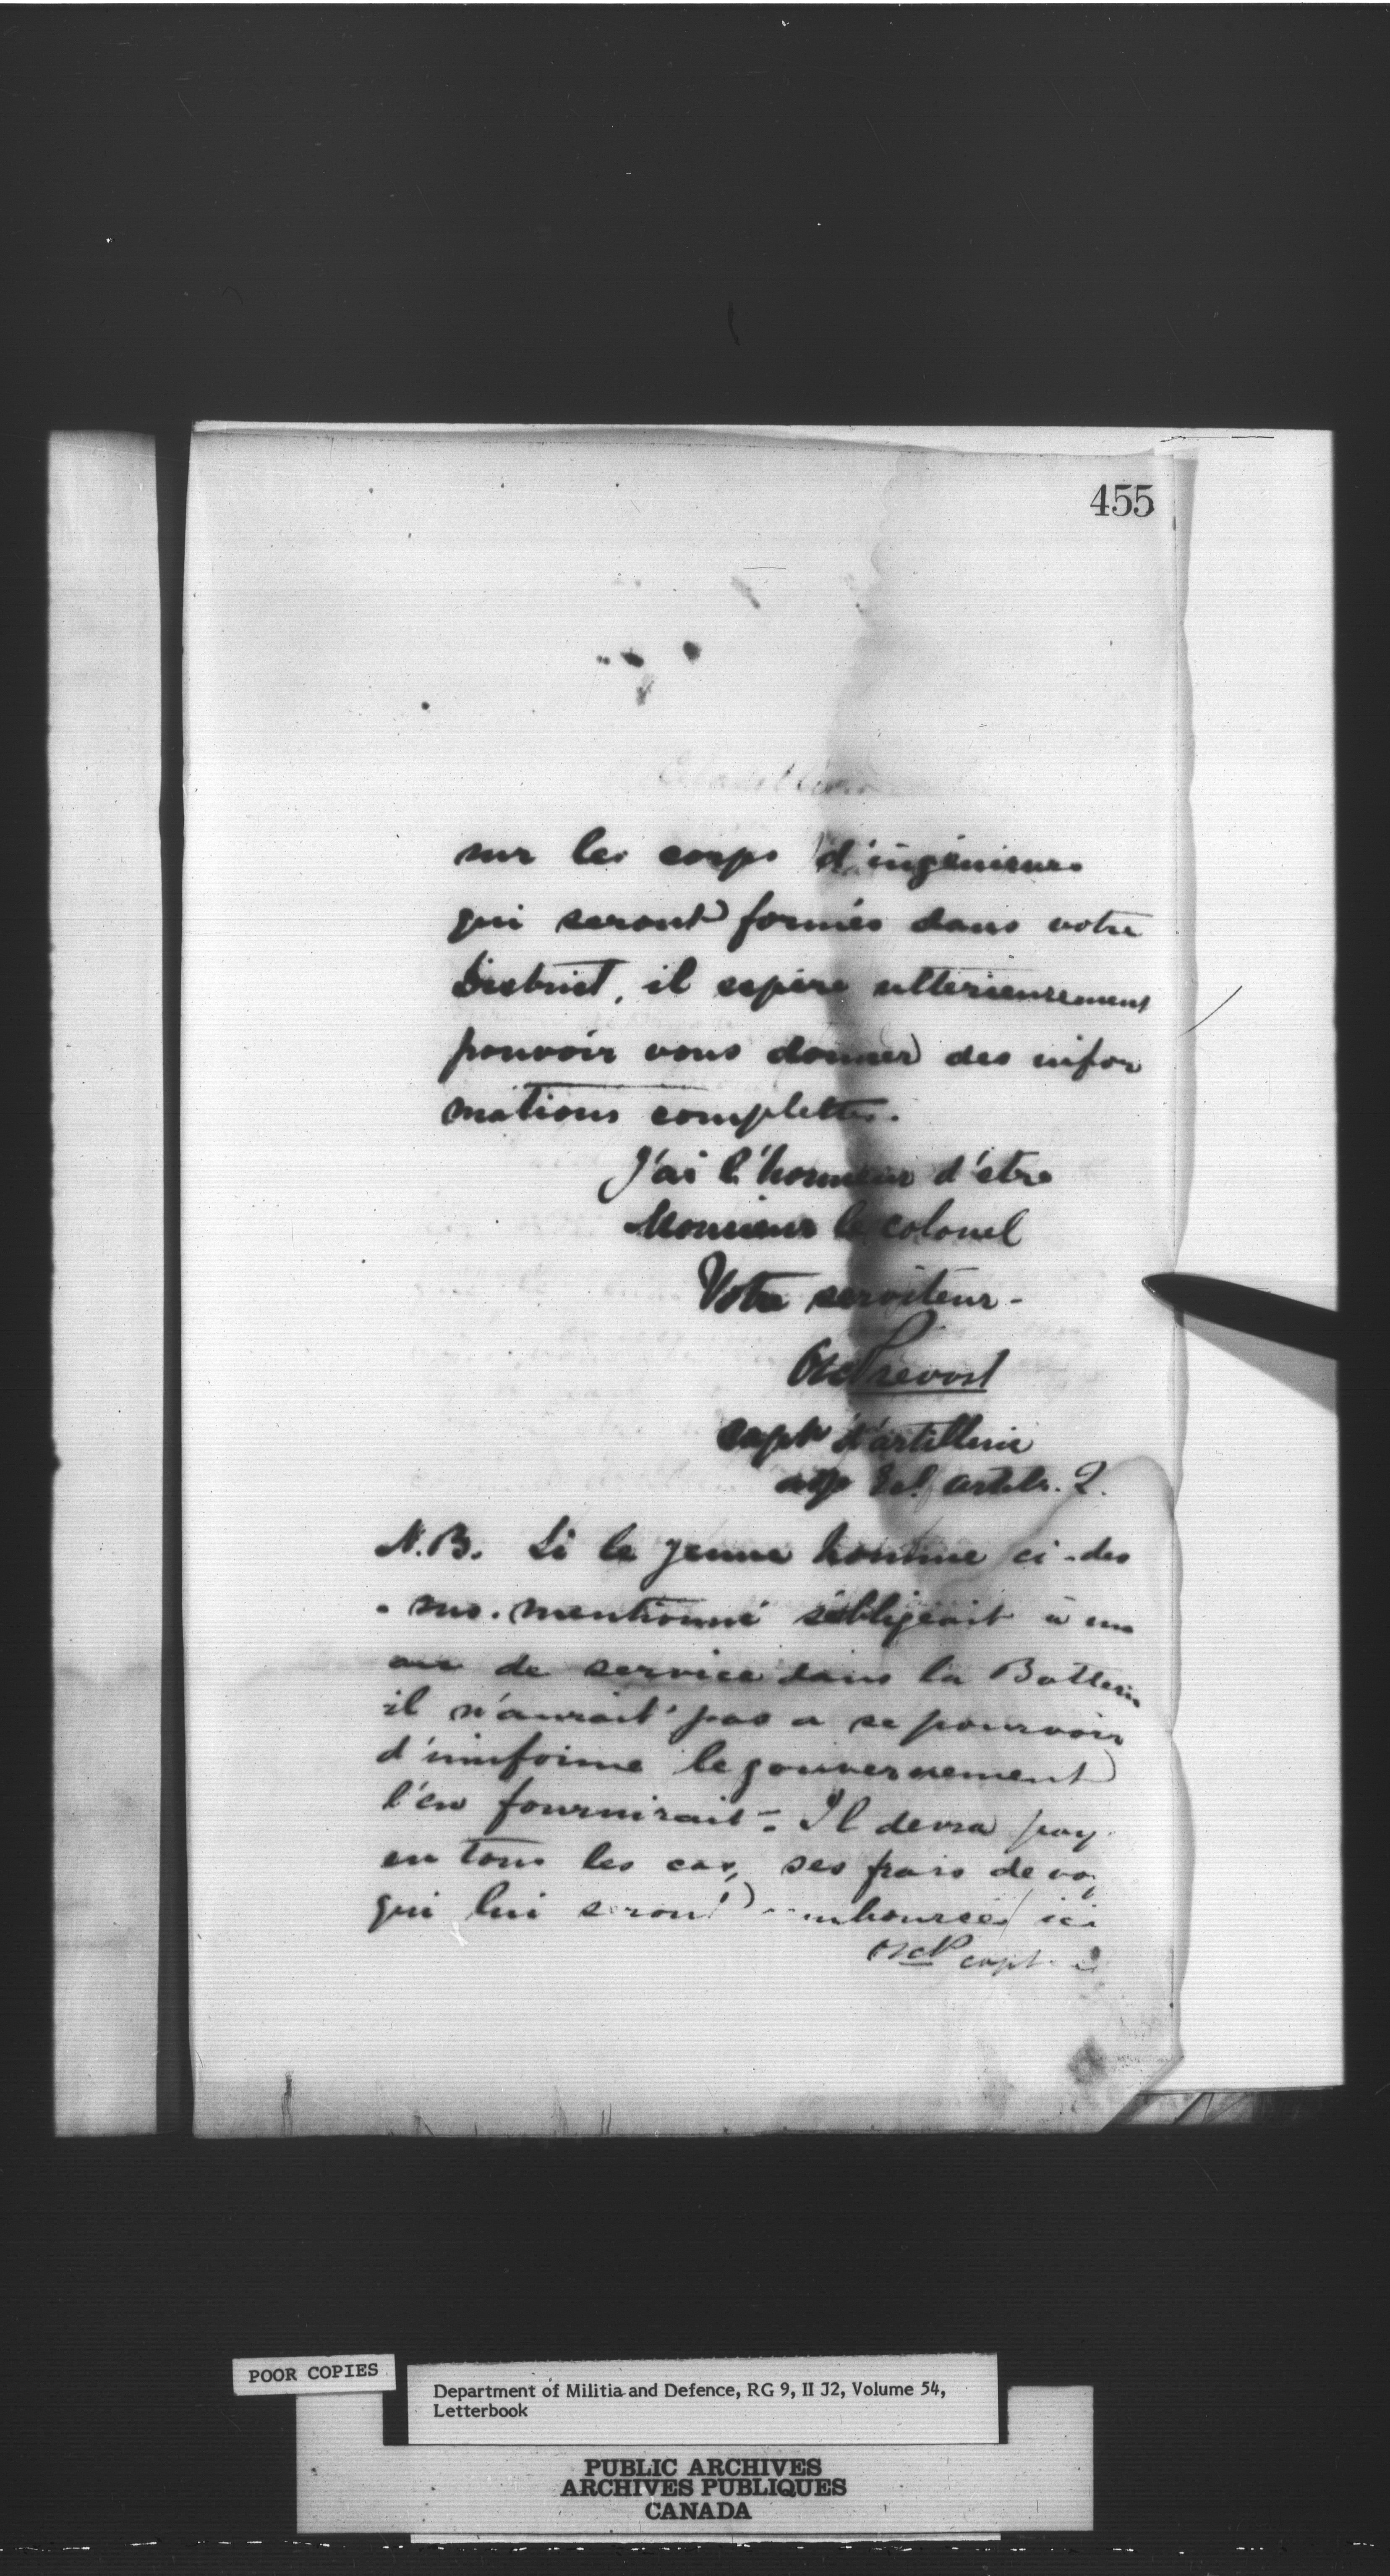 455
sur les corps d'ingénieurs
qui seront formés dans votre
District, il espère ultérieurement
pouvoir vous donner des infor
mations complettes.
J'ai l'honneur d'être
Monsieur le colonel
Votre serviteur -
OscPrevost
capt d'artillerie
artil. Q.
N.B. Si le jeune homme ci-des
-sus-mentionné s'obligeait à un
an de service dans la Batterie
il n'aurait pas a se pourvoir
d'uniforme le gouvernement
l'en fournirait - Il devra pay
en tous les cas, ses frais de voy
qui lui seront remboursés ici
OscP capt
POOR COPIES
Department of Militia and Defence, RG 9, II J2, Volume 54,
Letterbook
PUBLIC ARCHIVES
ARCHIVES PUBLIQUES
CANADA